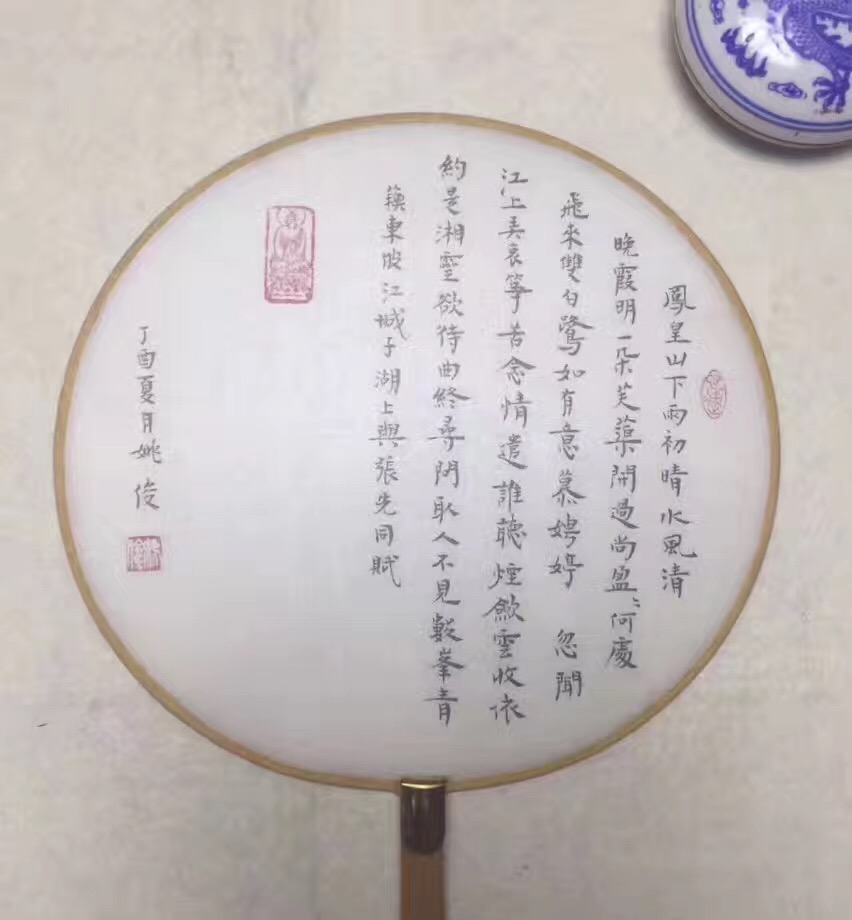 鳳皇山下雨初晴水風清
晚霞明一朵芙蕖開過尚盈〻何處
飛來雙白鷺如有意慕娉婷 忽聞
江上弄哀筝苦含情遣誰聽煙斂雲收依
約是湘靈欲待曲終尋問取人不見數峯青
蘇東坡江城子湖上與張先同賦
丁酉夏月姚俊